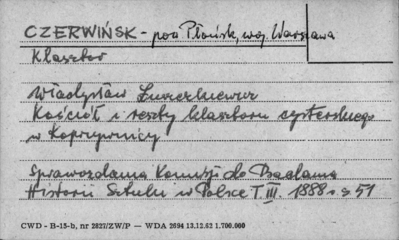 CZERWIŃSK - pow. Płońsk, woj. Warszawa
Klasztor
Władysław Łuszczkiewicz
Kościół i reszty klasztoru cysterskiego
w Koprzywnicy
Sprawozdania Komisji do Badania
Historii Sztuki w Polsce T. III. 1888 r. s 51
CWD - B-15-b, nr 2827/ZW/P — WDA 2694 13.12.62 1.700.000